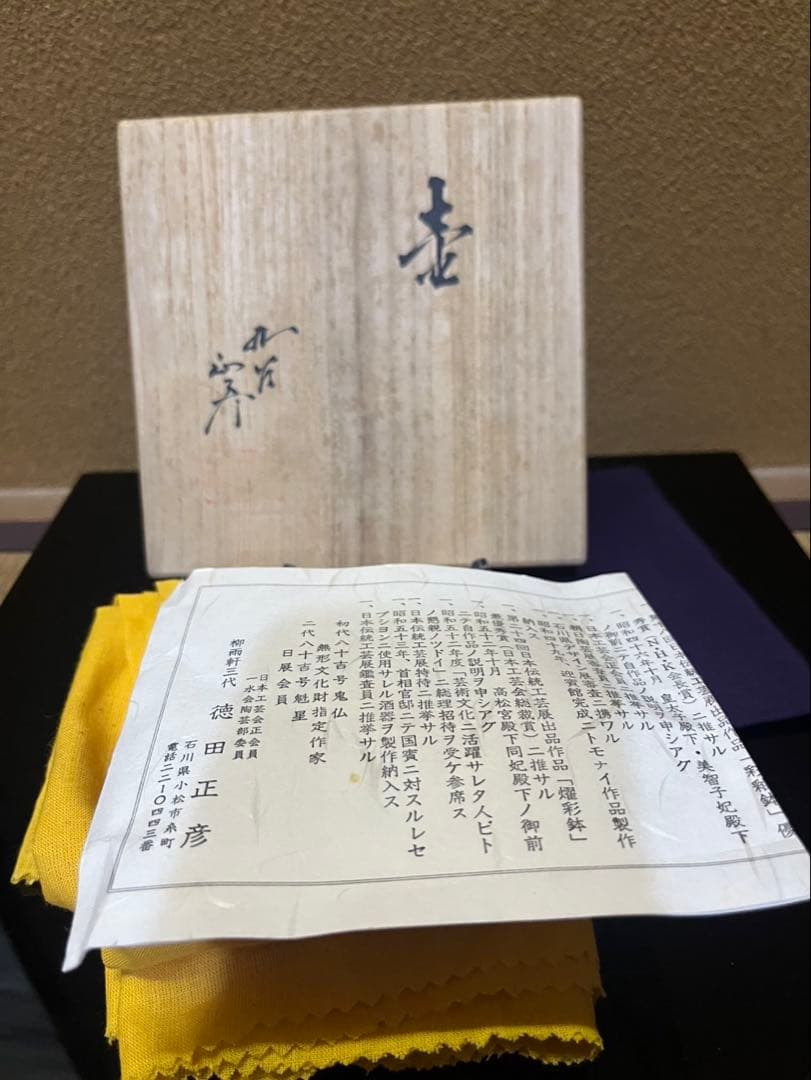 壷
九谷
正彦
秀賞(N・H・K会長賞)ニ推サル
一、昭和四十六年十月 皇太子殿下・美智子妃殿下
ノ御前ニテ自作品ノ説明ヲ申シアグ
一、日本工芸会正会員ニ推挙サル
石川県デザイン展審査ニ携ワル
一、昭和四十九年、迎賓館完成ニトモナイ作品製作
納入ス
一、第二十四回日本伝統工芸展出品作品「燿彩鉢」
最優秀賞(日本工芸会総裁賞)ニ推サル
一、昭和五十二年十月 高松宮殿下同妃殿下ノ御前
ニテ自作品ノ説明ヲ申シアグ
一、昭和五十二年度「芸術文化ニ活躍サレタ人ビト
ノ懇親ノツドイ」ニ総理招待ヲ受ケ参席ス
一、日本伝統工芸展特待ニ推挙サル
一、昭和五十三年、首相官邸ニテ国賓ニ対スルレセ
プシヨンニ使用サレル酒器ヲ製作納入ス
一、日本伝統工芸展鑑査員ニ推挙サル
初代八十吉号鬼仏
無形文化財指定作家
二代八十吉号魁星
日展会員
日本工芸会正会員
一水会陶芸部委員
柳雨軒三代 徳田正彦
石川県小松市糸町
電話二二-〇四四三番